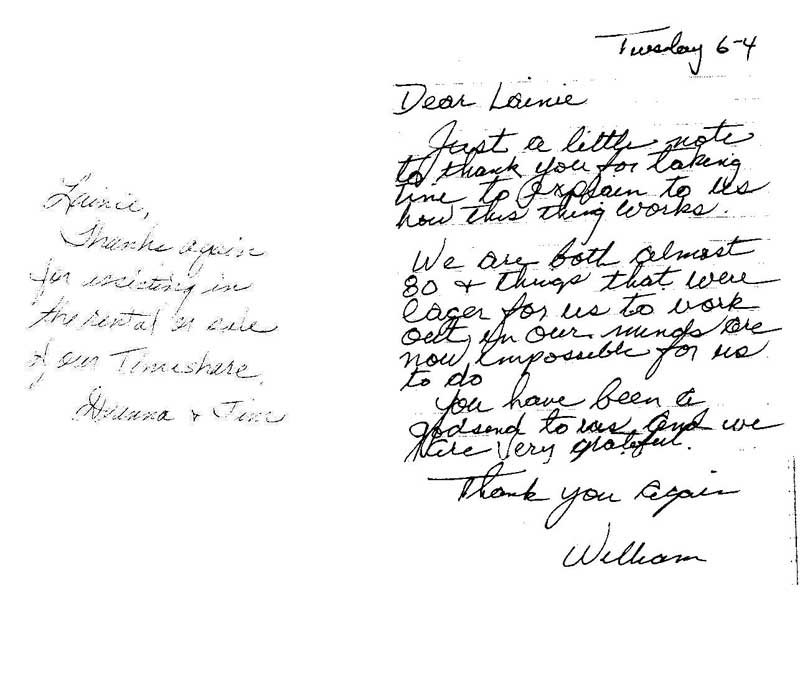 Lainie,
Thanks again
for assisting in
the rental or sale
of our Timeshare.
& Jim
Tuesday 6-4
Dear Lainie
Just a little note
to thank you for taking
time to explain to us
how this thing works.
We are both almost
80 & things that were
eager for us to work
out in our minds are
now impossible for us
to do
You have been a
godsend to us and we
are very grateful.
Thank you again
William